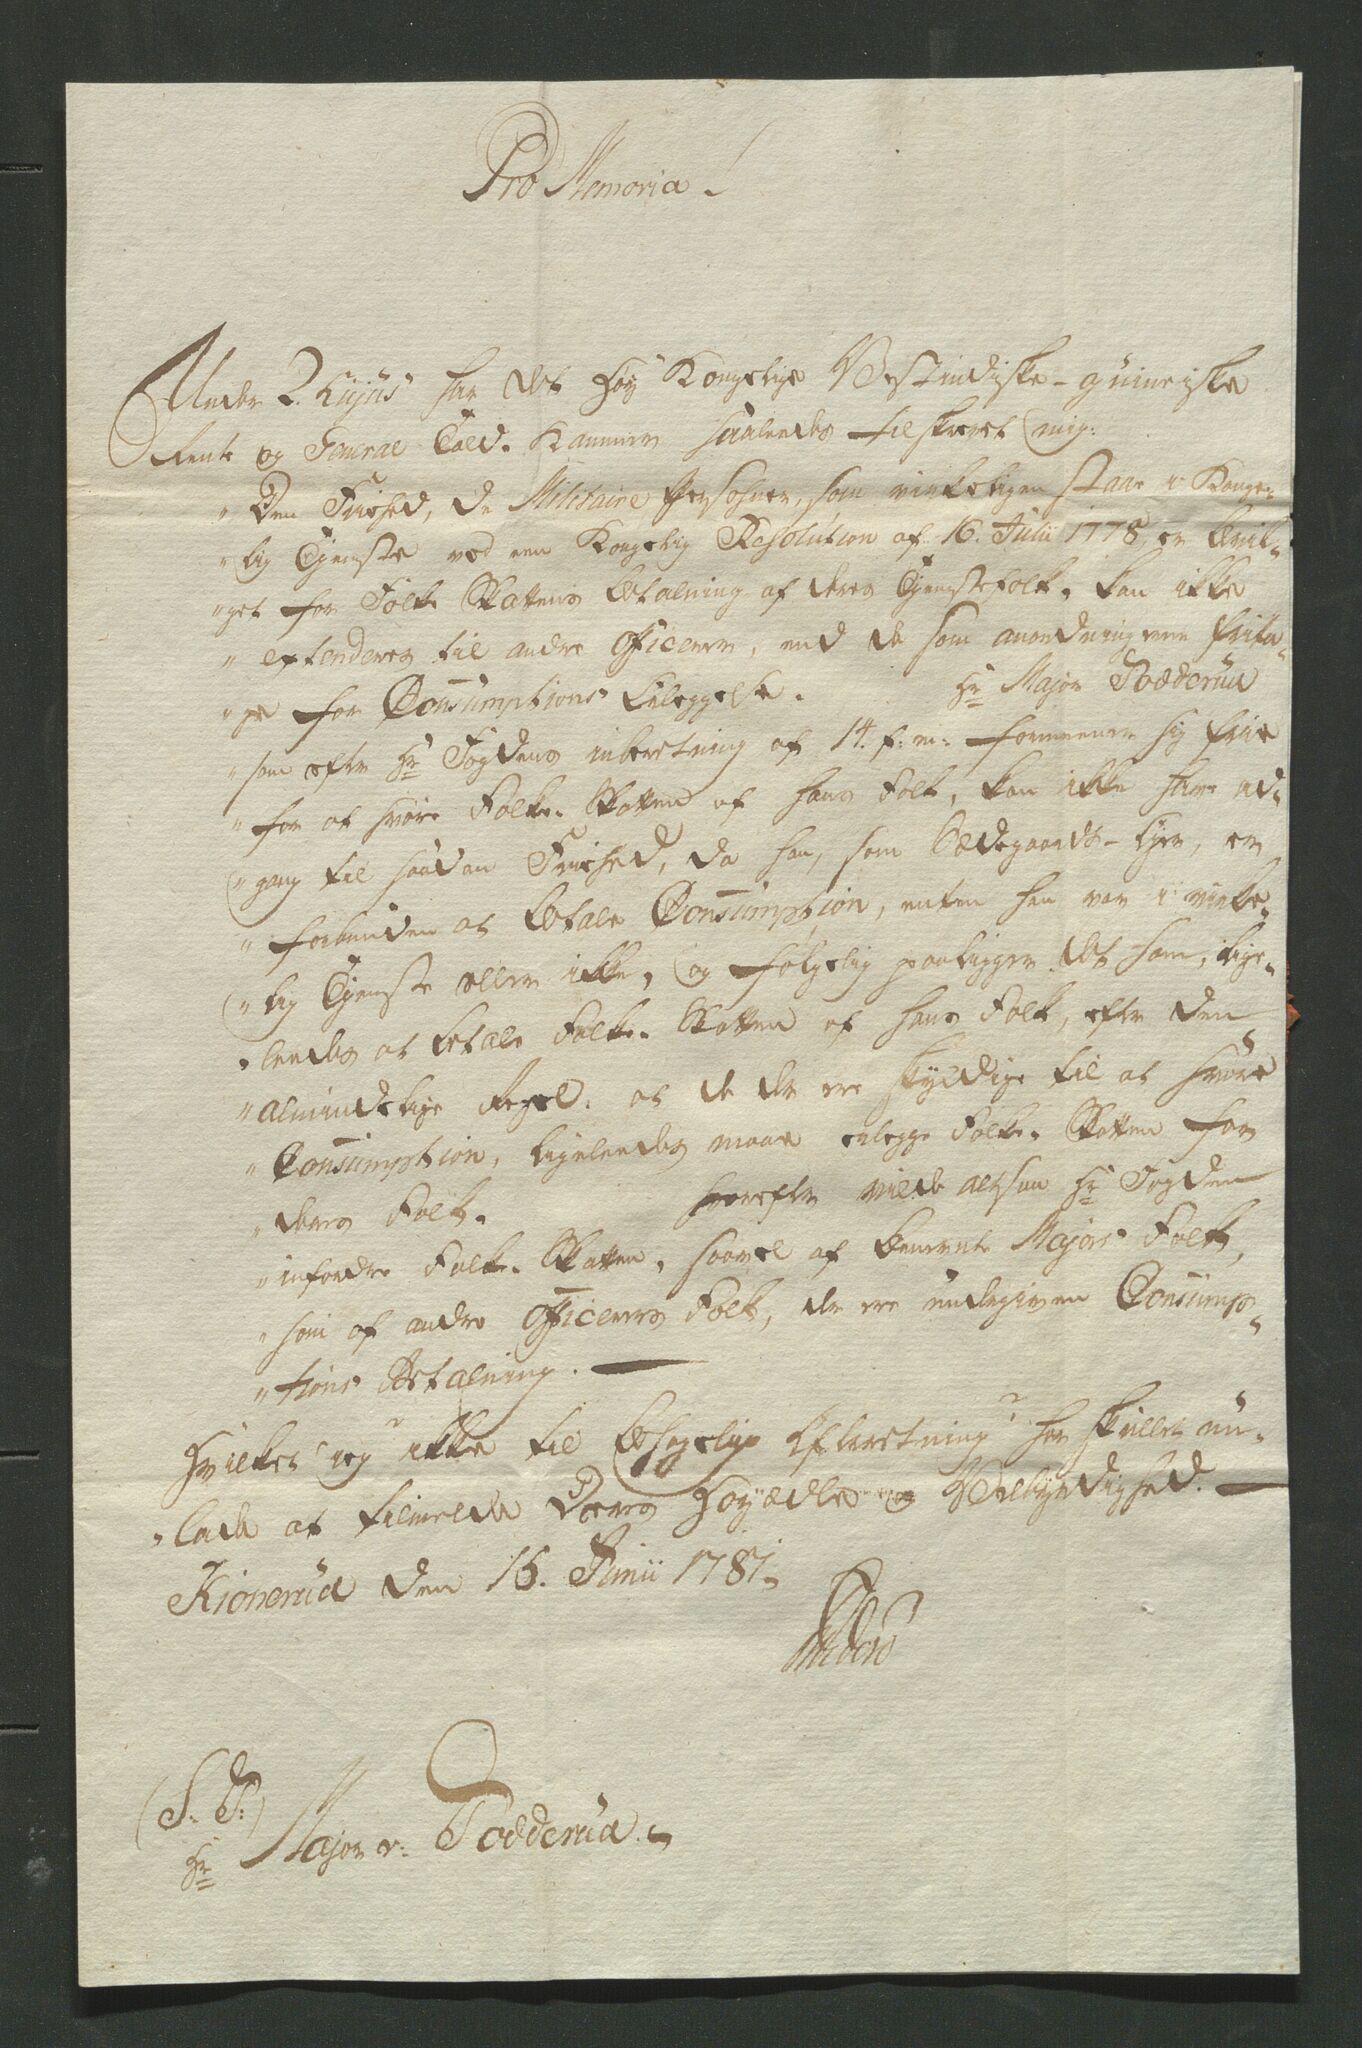 Pro Memoria
Under 2. Hujus har det Høy Kongelige Vestindiske-guineiske
Rente og General Told-Kammer saaledes tilskrevet mig:
"Den Friehed, de Militaire Personer, som virkeligen staae i Konge-
"lig Tjeneste ved een Kongelig Resolution af 16. Julii 1778, er bevil-
"get for Folke Skattens betalning af deres Tjenestefolk, kan ikke
"extenderes til andre Officerer, end de som anordningerne frita-
"ge for Consumptions Erleggelse. Hr Major Todderud
"som efter Hr Fogdens inberetning af 14. f: m: formeener sig frie
"for at svare Folke-Skatten af hans Folk, kan ikke have ad-
"gang til saadan Friehed, da han, som Sædegaards-Eyer, er
"forbunden at betale Consumption, enten han var i virke-
"lig Tjeneste eller ikke, og følgelig paaligger det ham, lige-
"leedes at betale Folke-Skatten af hans Folk, efter den
"almindelige Regel: at de der ere skyldige til at svare
"Consumption, ligeleedes maae erlegge Folke-Skatten for
"deres Folk. Hvorefter vilde altsaa Hr Fogden
"infordre Folke-Skatten, saavel af benevnte Majors Folk,
"som af andre Officerers Folk, der ere undergiven Consump-
"tions Betalning.
Hvilket jeg ikke til behagelig Efterretning har skullet un-
"lade at tilmelde Deres Høyædle og Velbyrdighed.
Kionerud den 16. Junii 1781
(S. T.)
Hr Major v: Todderud.